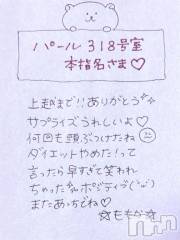 パール318号室
本指名さま♡
上越まで!!ありがとう
サプライズうれしいよ♡
何回も頭ぶつけたね
ダイエットやめた!って
言ったら早すぎて笑われ
ちゃった ポジティブ('ω')
またあいちでね♡
☆ももか☆